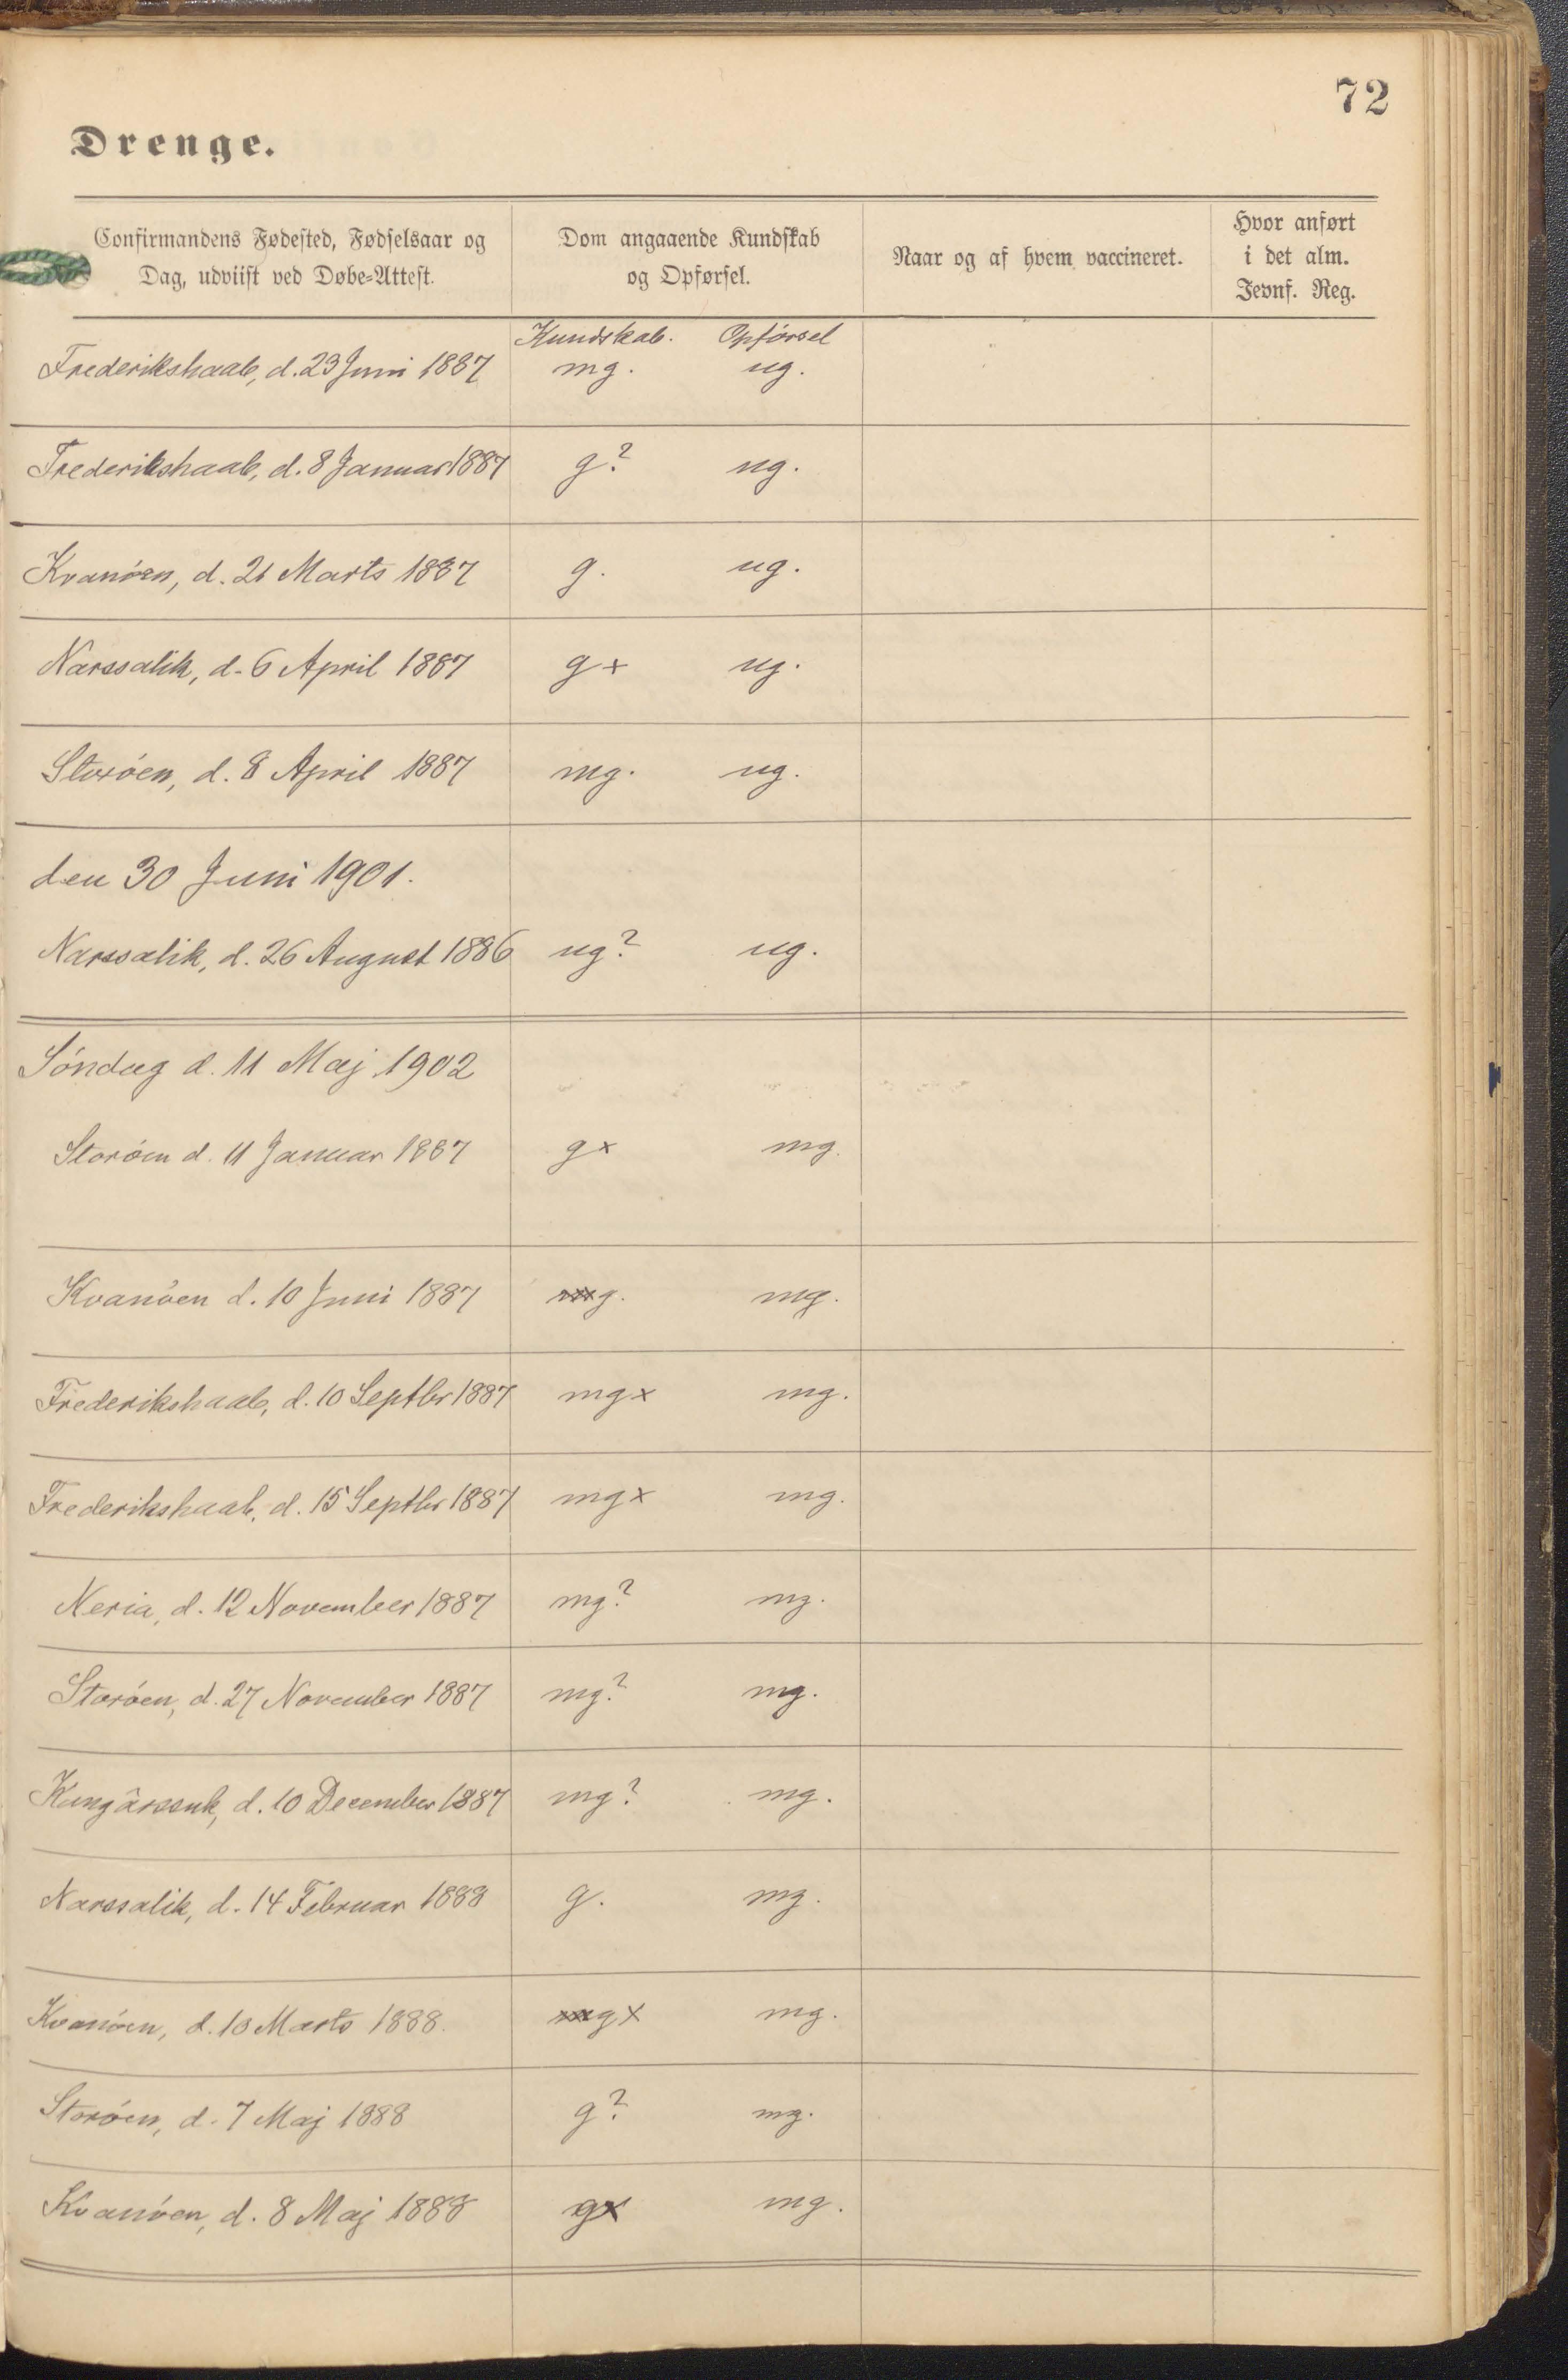 72
Drenge.
Confirmandens Fødested, Fødselsaar og
Dag, udviist ved Døbe-Attest.
Dom angaaende Kundskab
og Opførsel.
Naar og af hvem vaccineret.
Hvor anført
i det alm.
Jevnf. Reg.
Kundskab. Opførsel
Frederikshaab, d. 23 Juni 1887 mg. ug.
Frederikshaab, d. 8 Januar 1887 g? ug.
Kvanøen, d. 21 Marts 1887 g. ug.
Narssalik, d. 6 April 1887 g+ ug.
Storøen, d. 8 April 1887 mg. ug.
den 30 Juni 1901.
Narssalik, d. 26 August 1886 ug? ug.
Søndag d. 11 Maj 1902
Storøen d. 11 Januar 1887 gx mg.
Kvanøen d. 10 Juni 1887 g. mg.
Frederikshaab, d. 10 Septbr 1887 mgx mg.
Frederikshaab, d. 15 Septbr 1887 mgx mg.
Neria, d. 12 November 1887 mg? mg.
Storøen, d. 27 November 1887 mg? mg.
Kangârssuk, d. 10 December 1887 mg? mg.
Narssalik, d. 14 Februar 1888 g. mg.
Kvanøen, d. Marts 1888. gx mg.
Storøen, d. 7 Maj 1888 g? mg.
Kvanøen, d. 8 Maj 1888 gx mg.